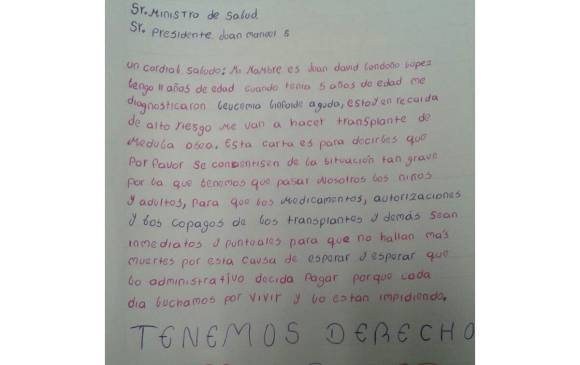 Sr. Ministro de Salud
Sr. Presidente Juan manuel S
un cordial saludo: Mi Nombre es Juan david Londoño López
tengo 11 años de edad cuando tenia 5 años de edad me
diagnosticaron Leucemia linfoide aguda, estoy en recaida
de alto riesgo me van a hacer transplante de
Medula osea. Esta carta es para decirles que
Por favor se consentisen de la situación tan grave
por la que tenemos que pasar Nosotros los niños
y adultos, para que los Medicamentos, autorizaciones
y los copagos de los transplantes y demás sean
inmediatos y puntuales para que no hallan más
muertes por esta causa de esperar y esperar que
lo administrativo decida Pagar porque cada
dia luchamos por vivir y lo estan impidiendo.
TENEMOS DERECHO